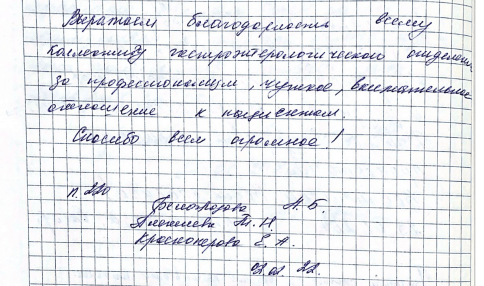 Выражаем благодарность всему
коллективу гастроэнтерологической отделения
за профессионализм, чуткое, внимательное
отношение к пациентам.
Спасибо всем огромное!
п. 220
Белогрозова Н. Б.
Т. Н.
Красноперова Е. А.
02.02.22.